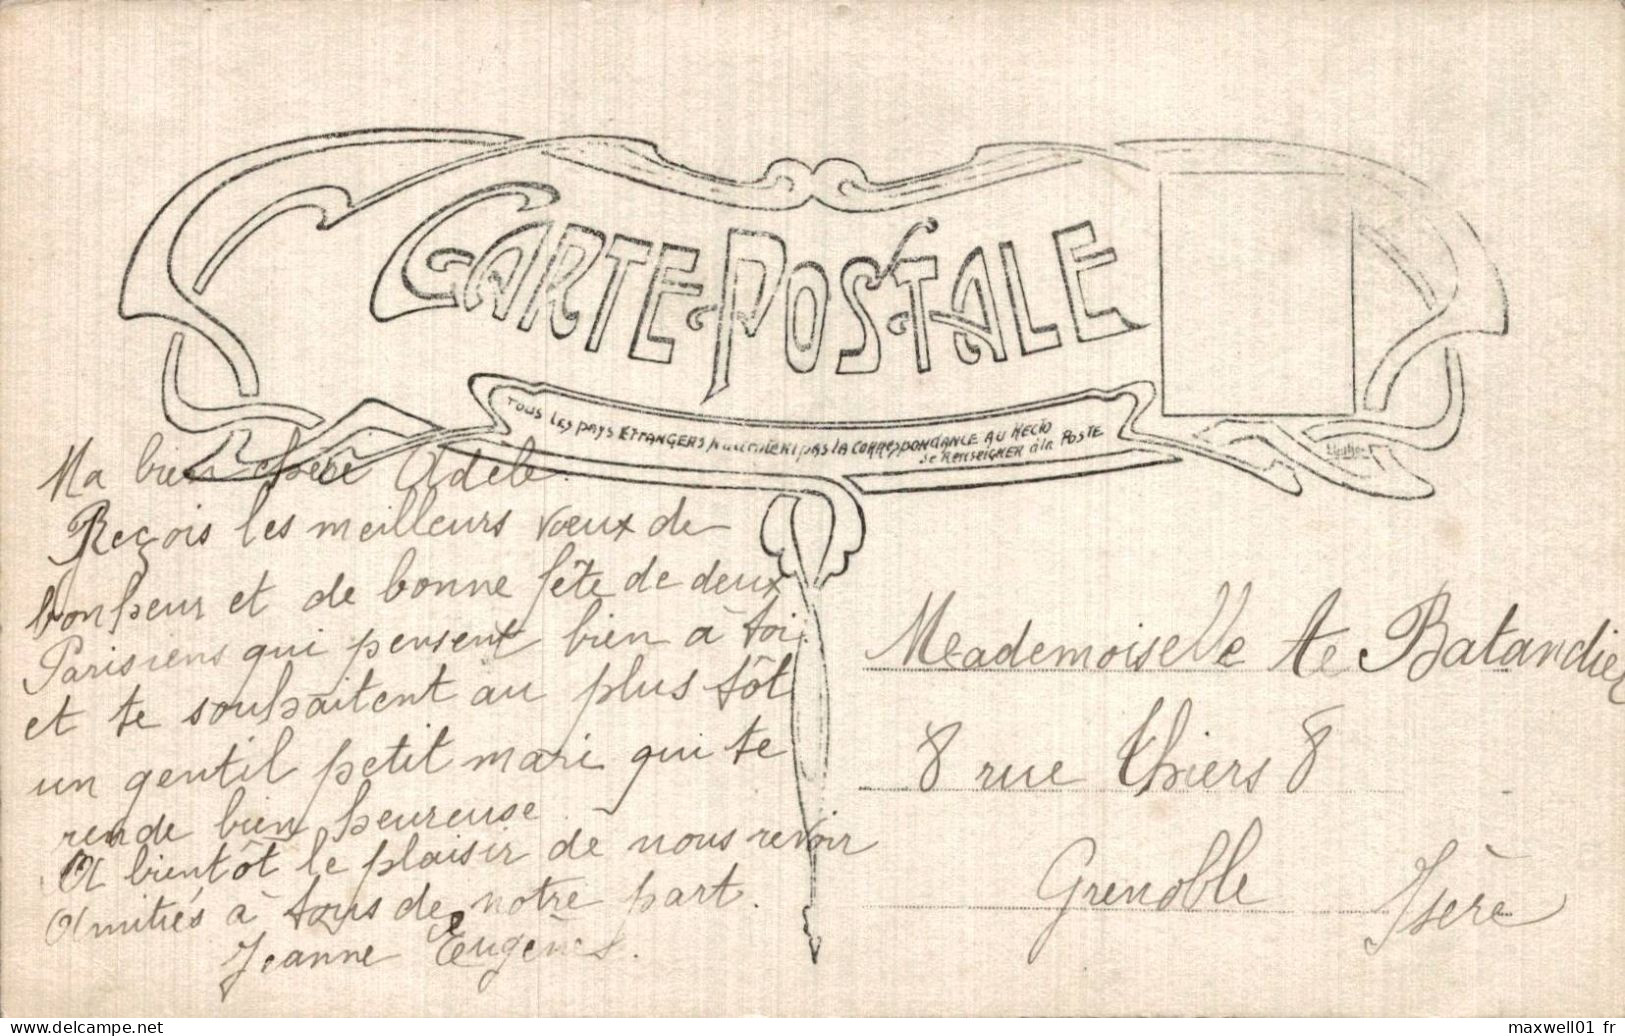 CARTE POSTALE
TOUS LES PAYS ETRANGERS N'ADMETTENT PAS LA CORRESPONDANCE AU RECTO
SE RENSEIGNER À LA POSTE
Ma bien chère Adele
Reçois les meilleurs vœux de
bonheur et de bonne fête de deux
Parisiens qui pensent bien à toi
et te souhaitent au plus tôt
un gentil petit mari qui te
rende bien heureuse
A bientôt le plaisir de nous revoir
Amitiés à tous de notre part.
Jeanne Eugènes.
Meademoiselle Ae Batandier
8 rue Thiers 8
Grenoble Isère
maxwell01 fr